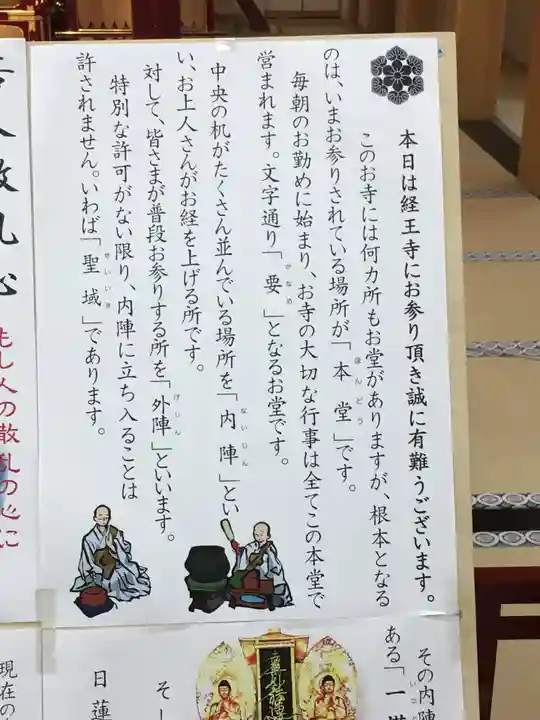 本日は経王寺にお参り頂き誠に有難うございます。
このお寺には何カ所もお堂がありますが、根本となる
のは、いまお参りされている場所が「本堂」です。
ほんどう
毎朝のお勤めに始まり、お寺の大切な行事は全てこの本堂で
営まれます。文字通り「要」となるお堂です。
かなめ
中央の机がたくさん並んでいる場所を「内陣」とい
ないじん
い、お上人さんがお経を上げる所です。
対して、皆さまが普段お参りする所を「外陣」といいます。
げじん
特別な許可がない限り、内陣に立ち入ることは
許されません。いわば「聖域」であります。
せいいき
散乱心
もし人の散乱の心に
その内陣
ある「一
そし
日蓮
現在の